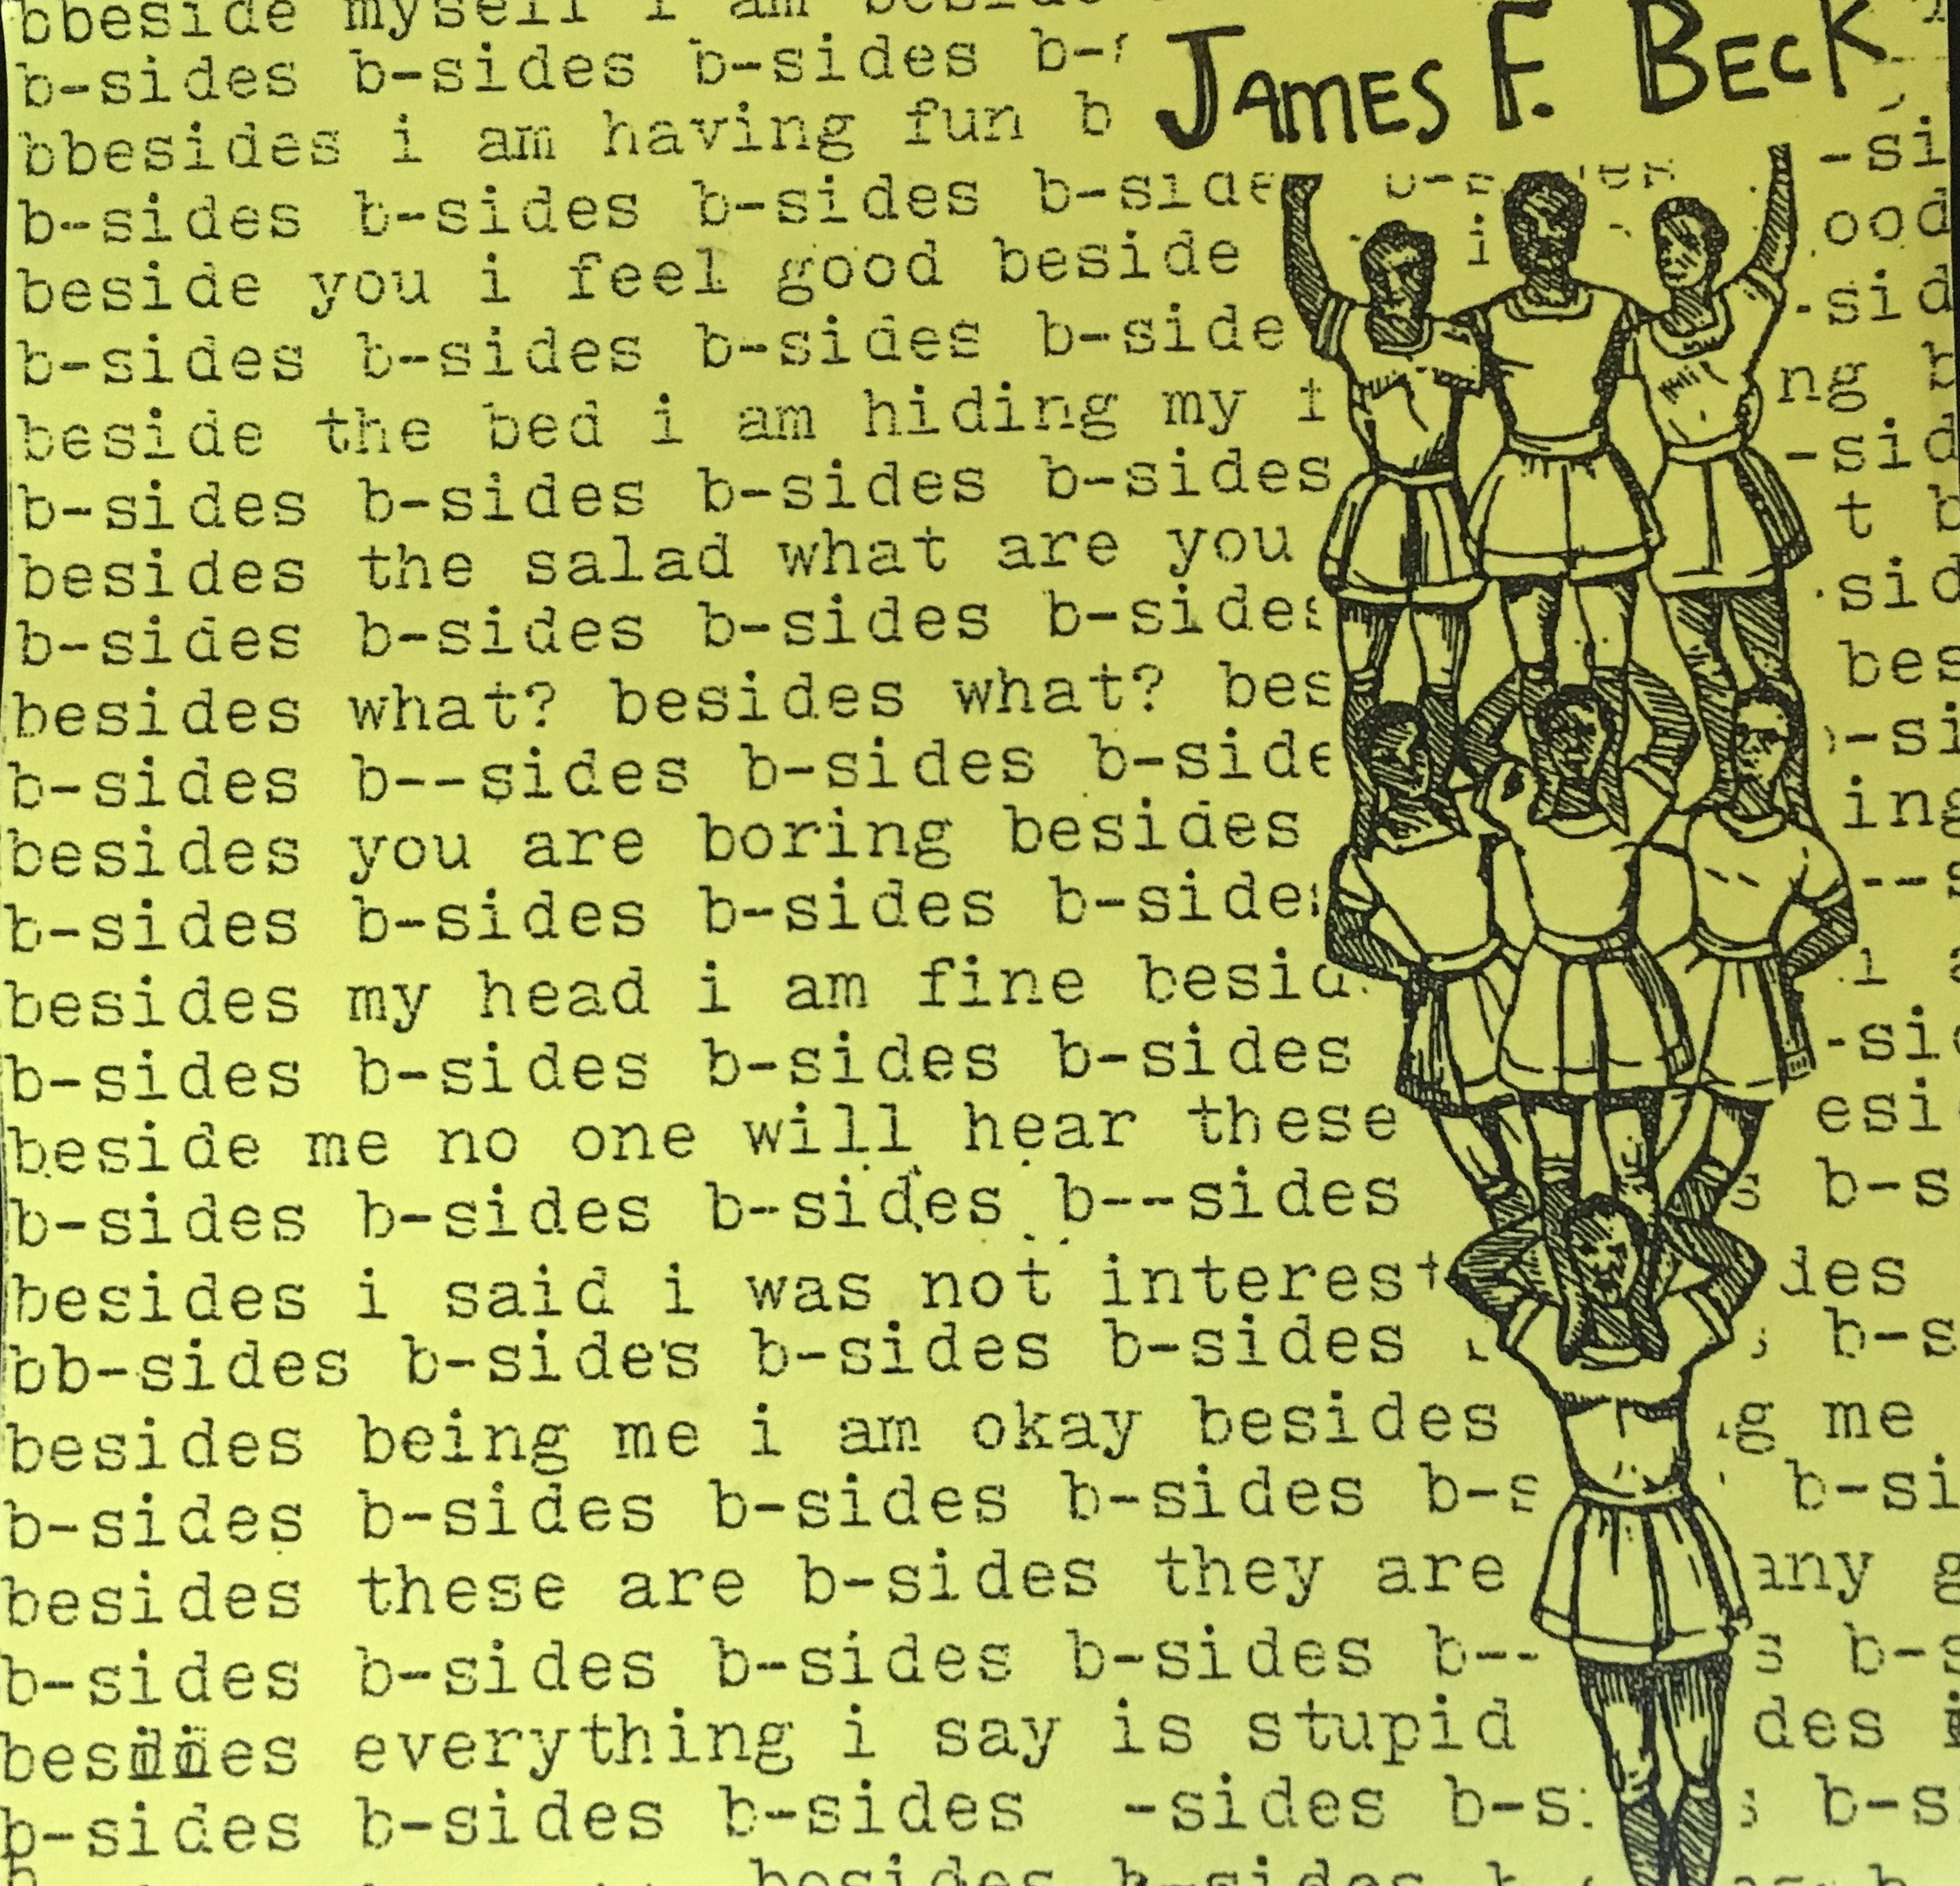 bbeside myself i am beside
JAMES F. BECK
b-sides b-sides b-sides b-
bbesides i am having fun b -si
b-sides b-sides b-sides b-side
beside you i feel good beside ood
b-sides b-sides b-sides b-side -sid
beside the bed i am hiding my ng
b-sides b-sides b-sides b-sides -sid
besides the salad what are you t b
b-sides b-sides b-sides b-sides sid
besides what? besides what? bes bes
b-sides b--sides b-sides b-side -si
besides you are boring besides ing
b-sides b-sides b-sides b-sides --s
besides my head i am fine besid
b-sides b-sides b-sides b-sides -sid
beside me no one will hear these esi
b-sides b-sides b-sides b--sides s b-s
besides i said i was not interest des
bb-sides b-sides b-sides b-sides b-s
besides being me i am okay besides g me
b-sides b-sides b-sides b-sides b-s b-si
besides these are b-sides they are any g
b-sides b-sides b-sides b-sides b-- s b-s
besides everything i say is stupid des
b-sides b-sides b-sides -sides b-s b-s
besides b-sides